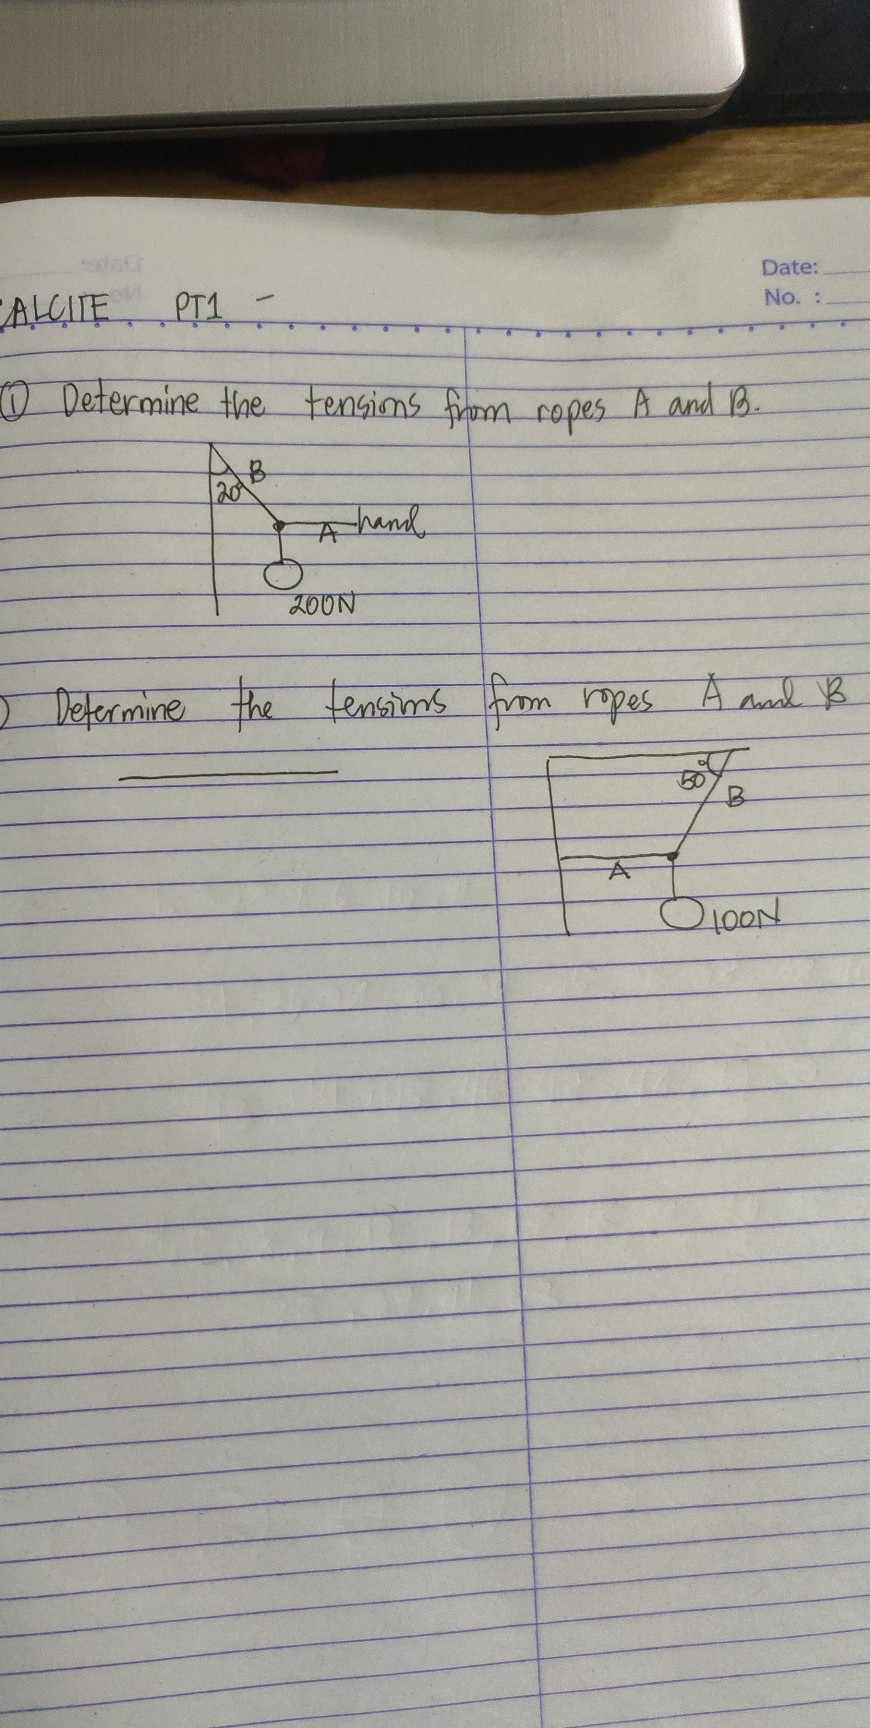 Date:
No. :
CALCITE PT1 -
① Determine the tensions from ropes A and B.
B
20°
A hand
200N
Determine the tensions from ropes A and B
50°
B
A
100N